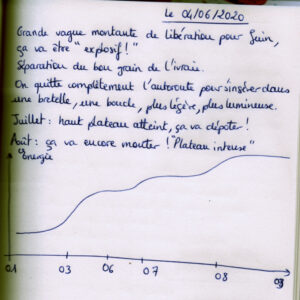 Le 04/06/2020
Grande vague montante de libération pour Juin,
ça va être "explosif!"
Séparation du bon grain de l'ivraie.
On quitte complètement l'autoroute pour s'insérer dans
une bretelle, une boucle, plus légère, plus lumineuse.
Juillet : haut plateau atteint, ça va dépoter!
Août : ça va encore monter! "Plateau intense"
énergie
01 03 06 07 08 09